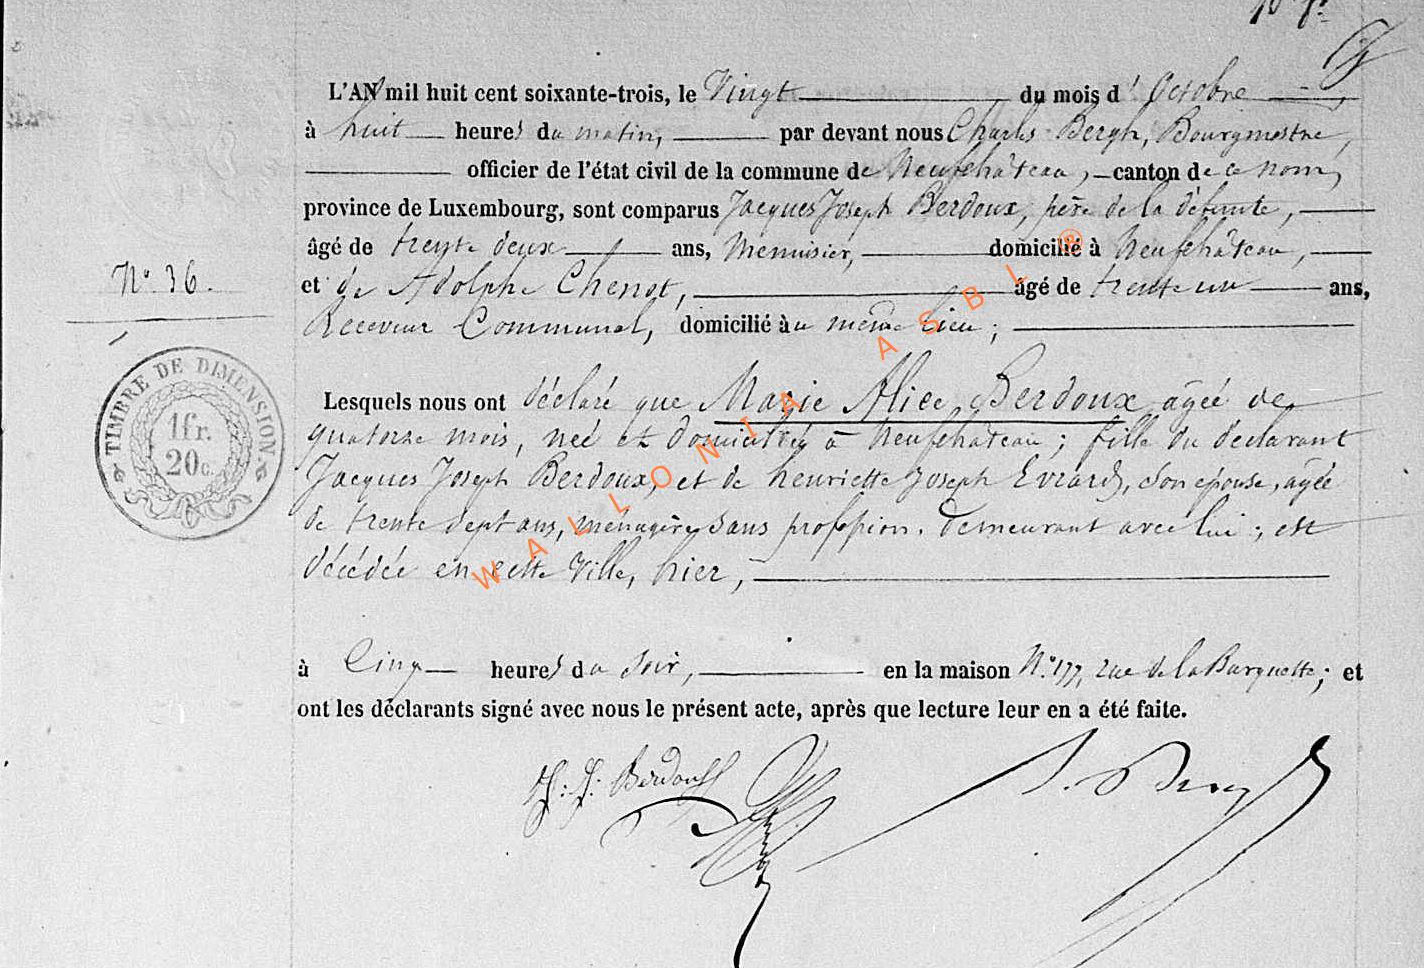 L'AN mil huit cent soixante-trois, le Vingt du mois d'Octobre
à huit heures du matin, par devant nous Charles Bergh, Bourgmestre,
officier de l'état civil de la commune de Neufchâteau, canton de ce nom,
province de Luxembourg, sont comparus Jacques Joseph Berdoux, père de la défunte,
âgé de trente deux ans, Menuisier, domicilié à Neufchâteau,
et de Adolphe Chenot, âgé de trente un ans,
N° 36.
Receveur Communal, domicilié au même lieu ;
TIMBRE DE DIMENSION
1 fr.
20 c.
Lesquels nous ont déclaré que Marie Alice Berdoux âgée de
quatorze mois, née et domiciliée à Neufchâteau ; fille du déclarant
Jacques Joseph Berdoux, et de henriette Joseph Evrard, son épouse, agée
de trente sept ans, ménagère sans profession, demeurant avec lui ; est
décédée en cette Ville, hier,
à Cinq heures du Soir, en la maison N° 177, rue de la Barquette ; et
ont les déclarants signé avec nous le présent acte, après que lecture leur en a été faite.
J. J. Berdoux
WALLONIA ASBL ®